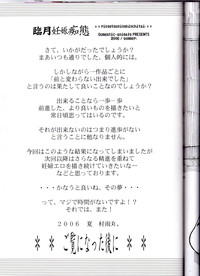 臨月妊婦痴態
PRESENTS
さて、いかがだったでしょうか？
まあいつも通りでした。個人的には。
しかしながら一作品ごとに
「前と変わらない出来でした」
と言うのは果たして良いことなのでしょうか？
出来ることなら一歩一歩
前進した、より良いものを描きたいと
常日頃思ってはいるのです。
それが出来ないのはつまり進歩がない
と言うことに他なりません。
今回はこのような結果になってしまいましたが
次回以降はさらなる精進を重ねて
妊婦エロを描き続けていきたいな―
などと思っております。
・・・かなうと良いね、その夢・・・
って、マジで時間がないですよ！？
それでは、また！
２００６　夏　村雨丸。
＊＊ご覧になった後に＊＊